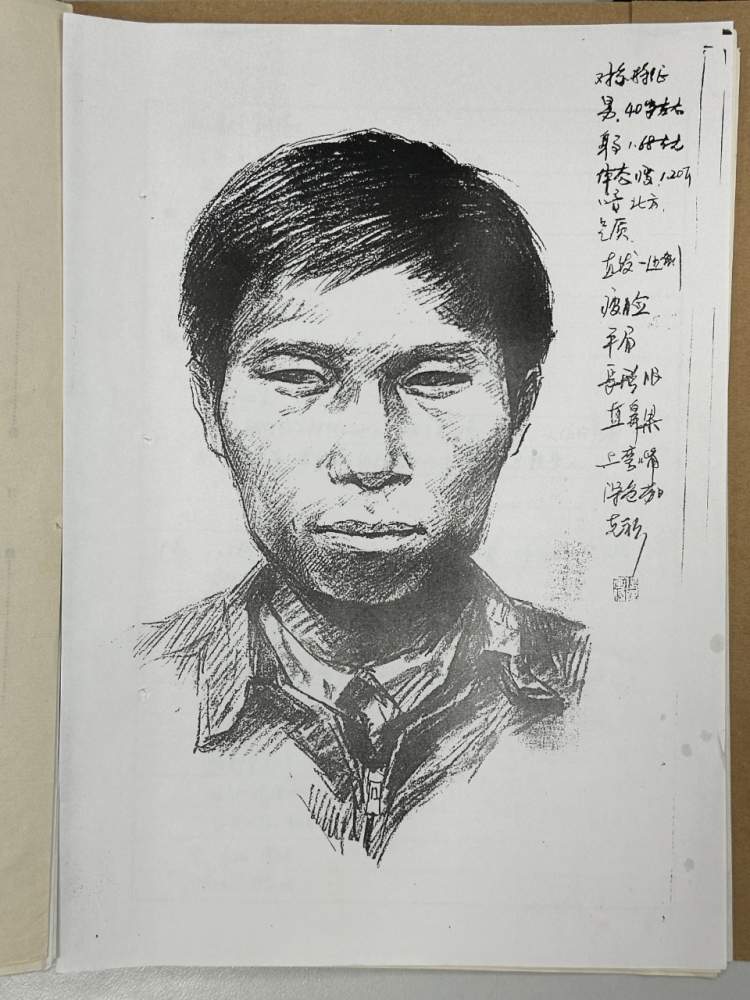 对象特征
男,40岁左右
身高1.68左右
体态瘦,120斤
口音北方,
气质
直发一边倒
瘦脸
平眉
長 眼
直鼻梁
上 嘴
深色加
克衫